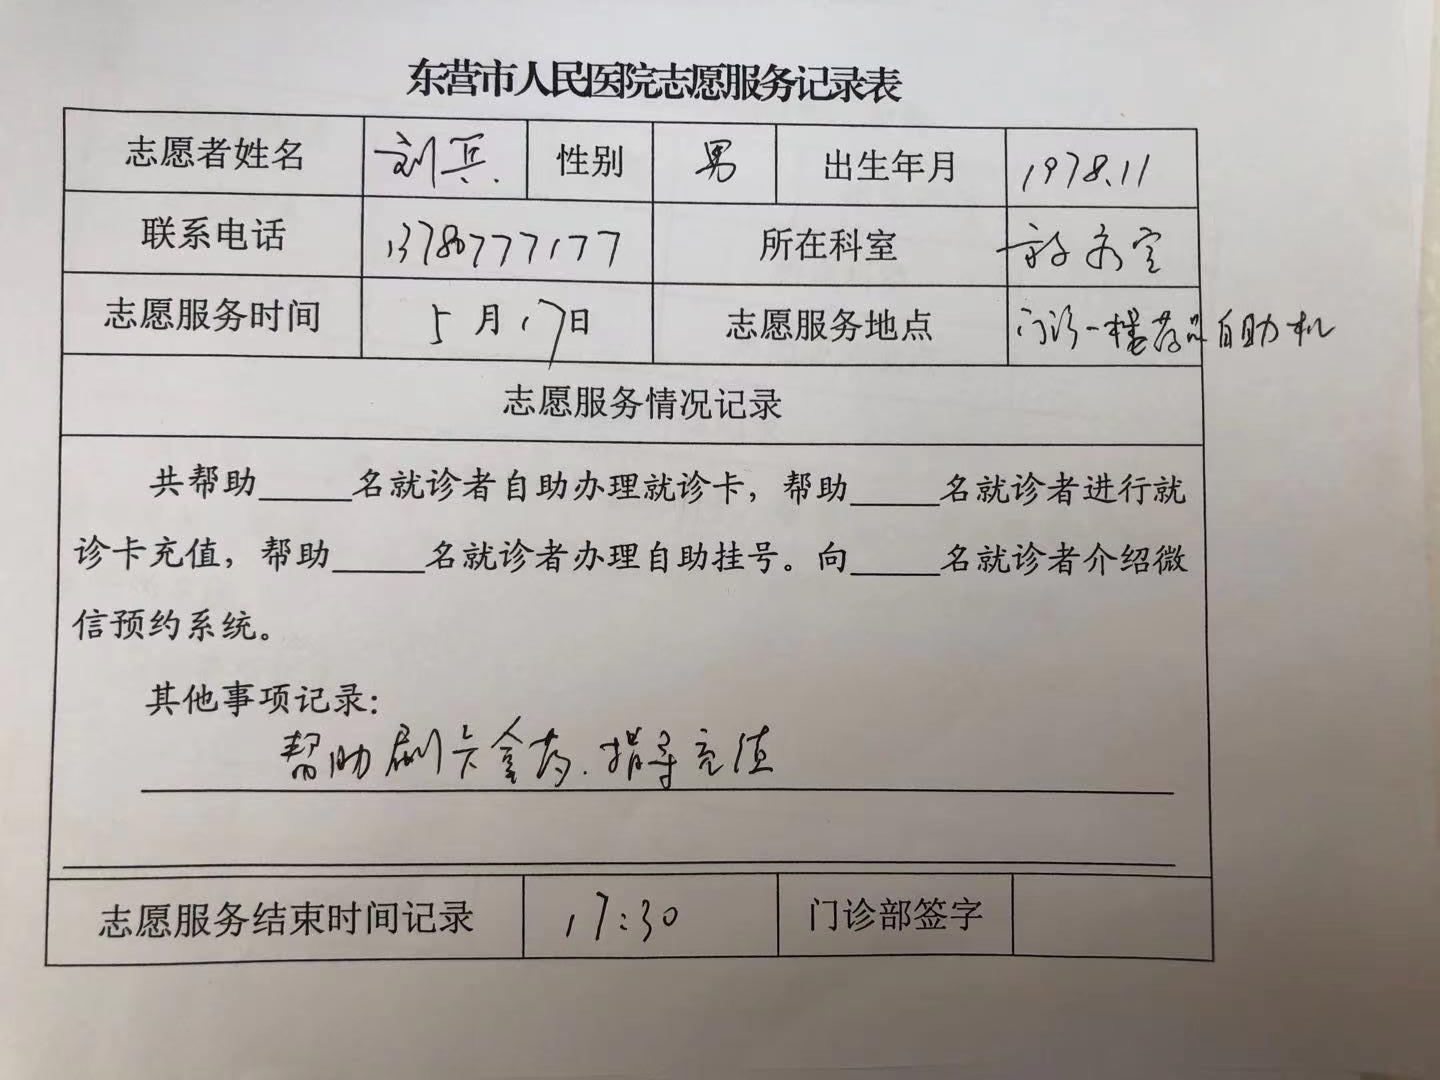 东营市人民医院志愿服务记录表
志愿者姓名 刘兵 性别 男 出生年月 1978.11
联系电话 13780777177 所在科室 放疗室
志愿服务时间 5月17日 志愿服务地点 门诊一楼药品自助机
志愿服务情况记录
共帮助_____名就诊者自助办理就诊卡，帮助_____名就诊者进行就
诊卡充值，帮助_____名就诊者办理自助挂号。向_____名就诊者介绍微
信预约系统。
其他事项记录：
帮助刷卡拿药.指导充值
志愿服务结束时间记录 17:30 门诊部签字